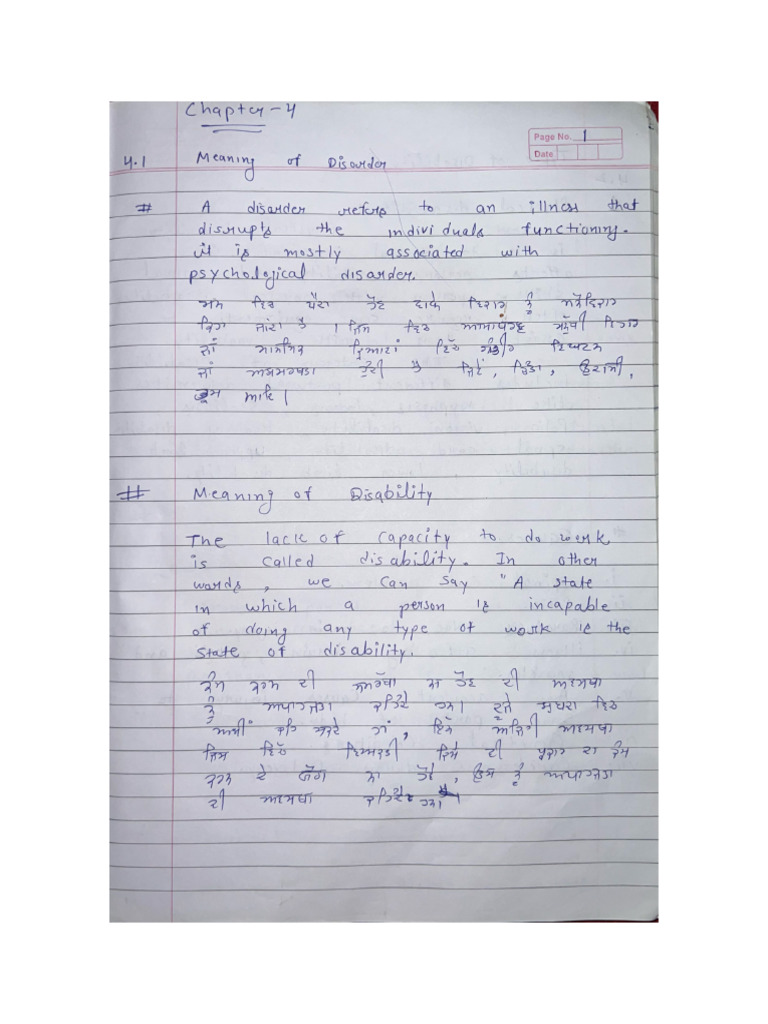 Chapter - 4
Page No. 1
Date
4.1 Meaning of Disorder
# A disorder refers to an illness that
disrupts the individuals functioning.
it is mostly associated with
psychological disorder.
ਮਨ ਵਿਚ ਪੈਦਾ ਹੋਣ ਵਾਲੇ ਵਿਕਾਰ ਨੂੰ ਮਨੋਵਿਕਾਰ
ਕਿਹਾ ਜਾਂਦਾ ਹੈ । ਜਿਸ ਵਿਚ
ਜਾਂ ਮਾਨਸਿਕ ਵਿੱਚ ਗੰਭੀਰ ਵਿਘਟਨ
ਜਾਂ ਹੁੰਦੀ ਹੈ ਜਿਵੇਂ, ਚਿੰਤਾ, ਉਦਾਸੀ,
ਆਦਿ।
# Meaning of Disability
The lack of capacity to do work
is called disability. In other
words, we can say "A state
in which a person is incapable
of doing any type of work is the
state of disability.
ਕੰਮ ਕਰਨ ਦੀ ਸਮਰੱਥਾ ਨਾ ਹੋਣ ਦੀ ਅਵਸਥਾ
ਨੂੰ ਅਪਾਹਜਤਾ ਕਹਿੰਦੇ ਹਨ। ਦੂਜੇ ਸ਼ਬਦਾ ਵਿਚ
ਅਸੀਂ ਕਹਿ ਸਕਦੇ ਹਾਂ, ਇੱਕ ਅਜਿਹੀ ਅਵਸਥਾ
ਜਿਸ ਵਿਚ ਵਿਅਕਤੀ ਕਿਸੇ ਵੀ ਪ੍ਰਕਾਰ ਦਾ ਕੰਮ
ਕਰਨ ਦੇ ਯੋਗ ਨਾ ਹੋਵੇ, ਉਸ ਨੂੰ ਅਪਾਹਜਤਾ
ਦੀ ਅਵਸਥਾ ਕਹਿੰਦੇ ਹਨ।